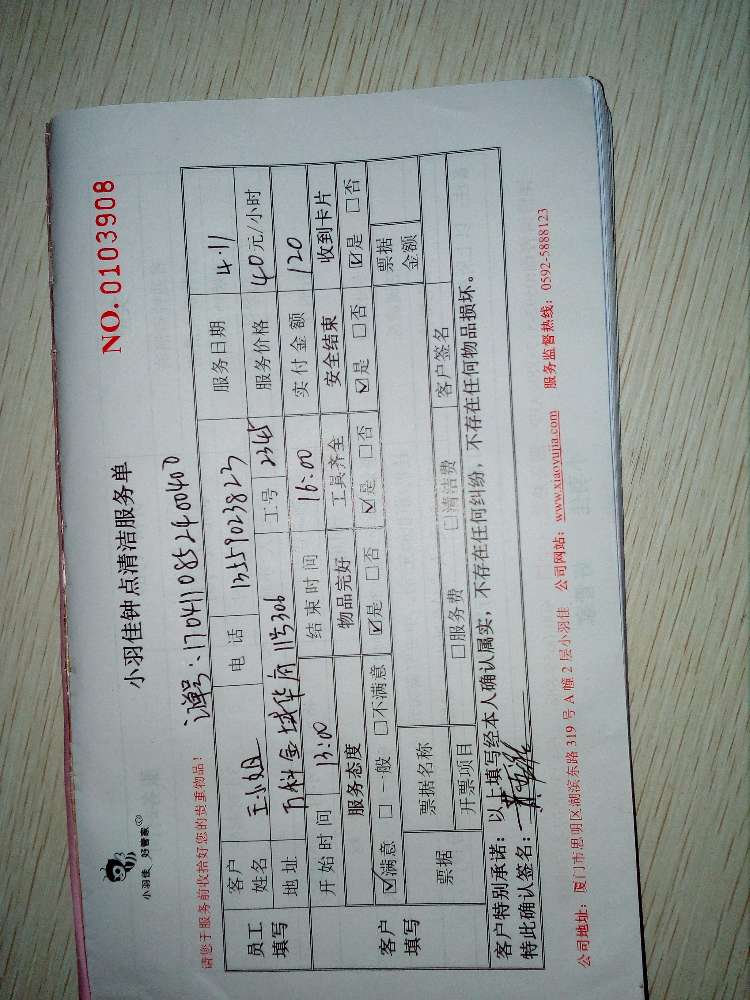 小羽佳 好管家
小羽佳钟点清洁服务单
NO. 0103908
请您于服务前收拾好您的贵重物品!
订单号:1704110852400400
员工填写 客户姓名 王小姐 电话 13559023823 服务日期 4.11
地址 万科金域华府11号306 工号 2345 服务价格 40元/小时
客户填写 开始时间 13:00 结束时间 16:00 实付金额 120
服务态度 物品完好 工具齐全 安全结束 收到卡片
☑满意 □一般 □不满意 ☑是 □否 ☑是 □否 ☑是 □否 ☑是 □否
票据 票据名称 票据金额
开票项目 □服务费 □清洁费 客户签名
客户特别承诺:以上填写经本人确认属实,不存在任何纠纷,不存在任何物品损坏。
特此确认签名:
公司地址:厦门市思明区湖滨东路319号A幢2层小羽佳 公司网站:www.xiaoyujia.com 服务监督热线:0592-5888123